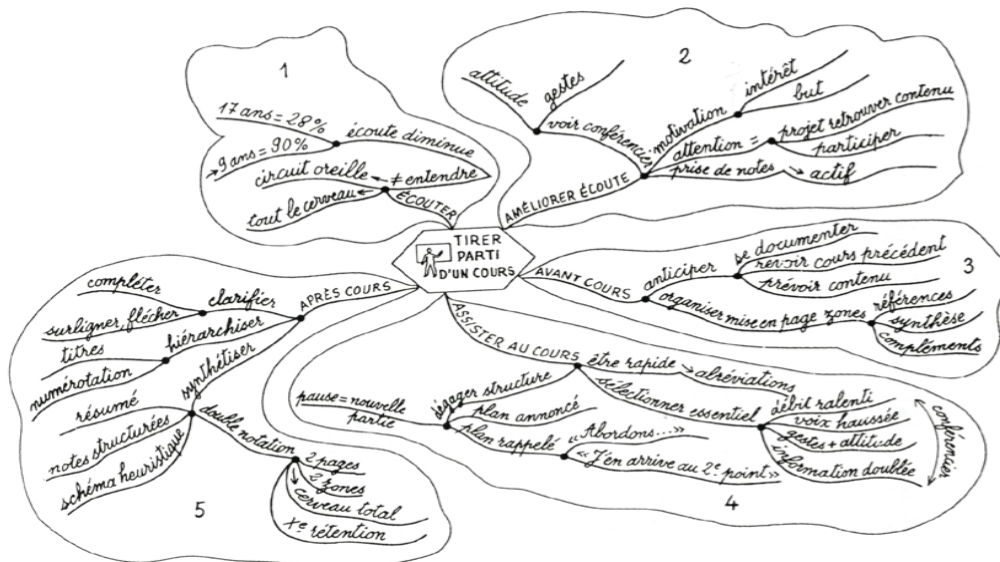 TIRER
PARTI
D'UN COURS
1
ÉCOUTER
écoute diminue
17 ans = 28%
→ 9 ans = 90%
≠ entendre
circuit oreille ←
tout le cerveau ←
2
AMÉLIORER ÉCOUTE
voir conférencier
attitude
gestes
motivation
intérêt
but
attention =
projet retrouver contenu
participer
prise de notes → actif
3
AVANT COURS
anticiper
se documenter
revoir cours précédent
prévoir contenu
organiser mise en page zones
références
synthèse
compléments
4
ASSISTER AU COURS
être rapide → abréviations
sélectionner essentiel
débit ralenti
voix haussée
gestes + attitude
information doublée
conférencier
dégager structure
pause = nouvelle
partie
plan annoncé
plan rappelé
« Abordons... »
« J'en arrive au 2e point »
5
APRÈS COURS
clarifier
compléter
surligner, flécher
hiérarchiser
titres
numérotation
synthétiser
résumé
notes structurées
schéma heuristique
double notation
2 pages
2 zones
cerveau total
rétention